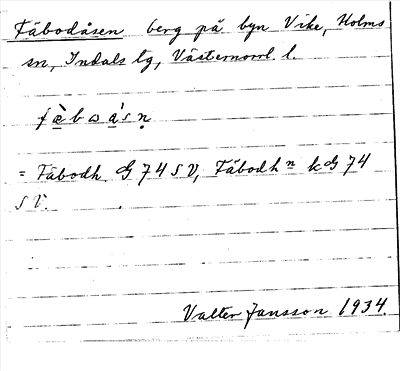 Fäbodåsen berg på byn Vike, Holms
sn, Indals tg, Västernorrl. l.
= Fäbodh. G 74 SV, Fäbodh n k G 74
SV.
Valter Jansson 1934.